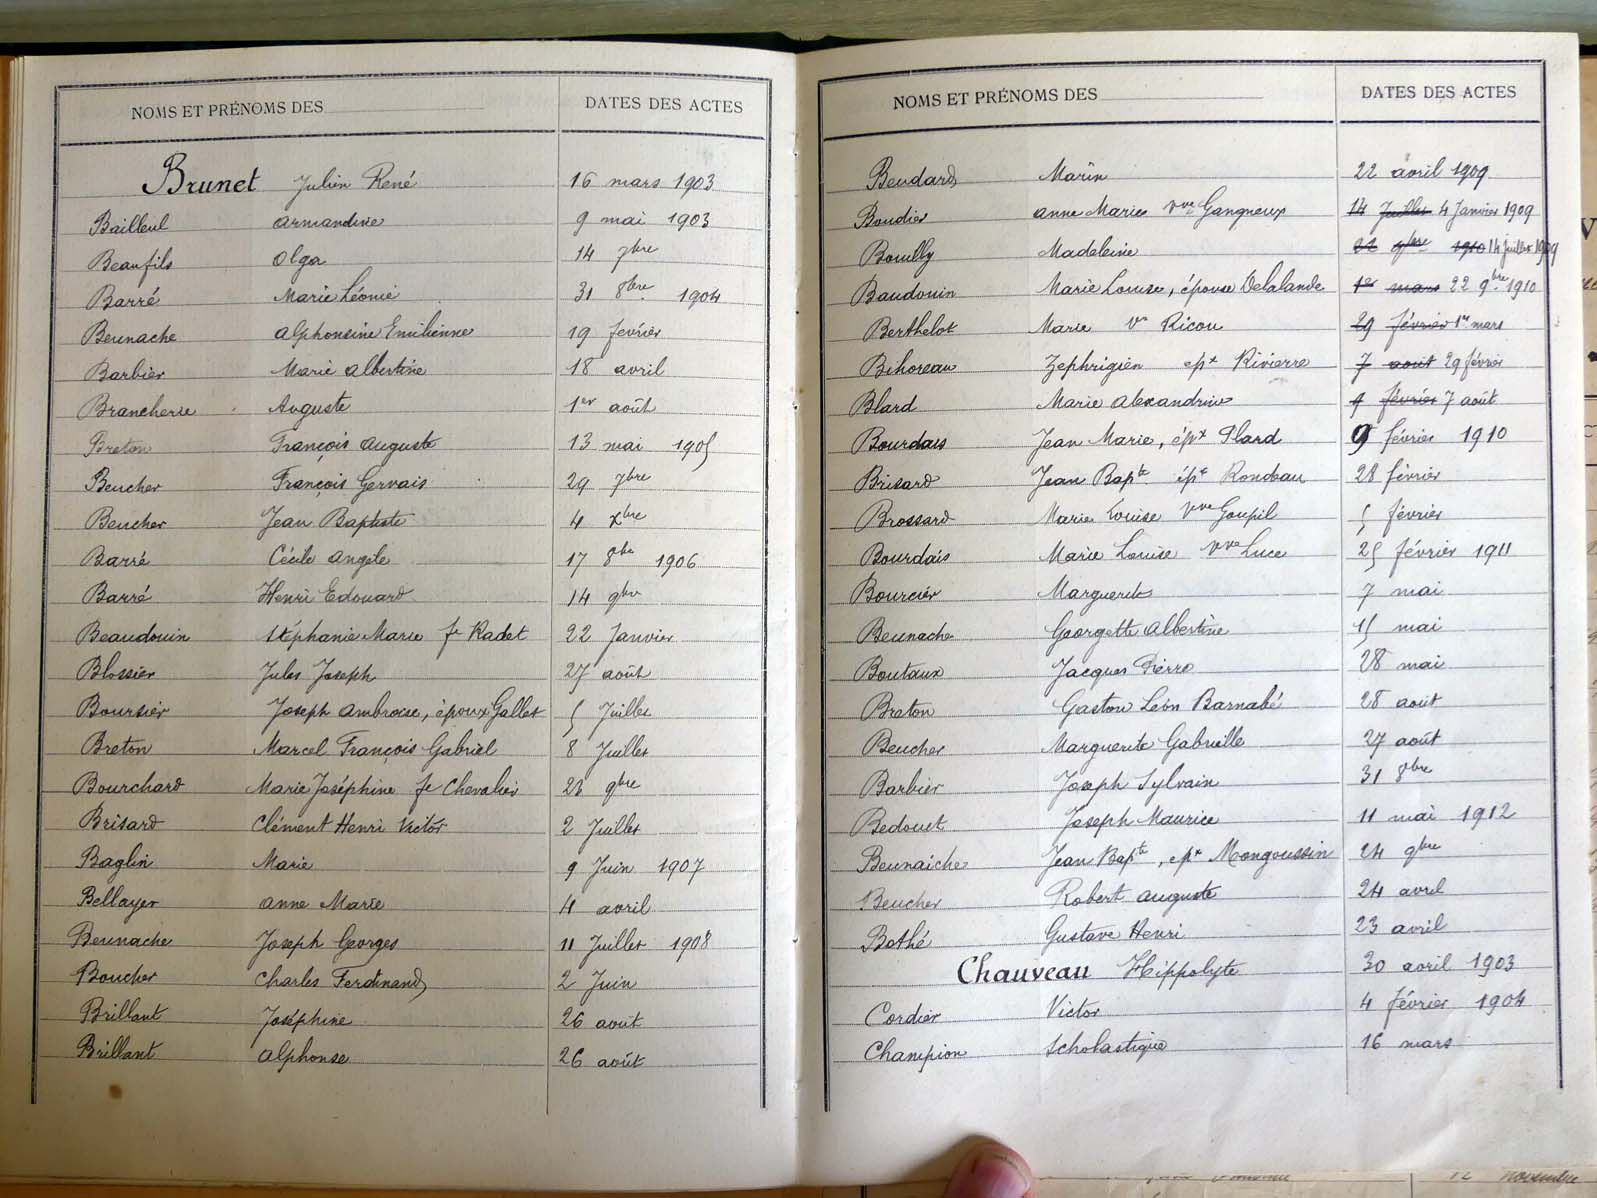 NOMS ET PRÉNOMS DES DATES DES ACTES
Brunet Julien René 16 mars 1903
Bailleul Armandine 9 mai 1903
Beaufils Olga 14 7bre
Barré Marie Léonie 31 8bre 1904
Beunache Alphonsine Emilienne 19 février
Barbier Marie Albertine 18 avril
Brancherie Auguste 1er août
Breton François Auguste 13 mai 1905
Beucher François Gervais 29 7bre
Beucher Jean Baptiste 4 Xbre
Barré Cécile Angèle 17 8bre 1906
Barré Henri Edouard 14 9bre
Beaudouin Stéphanie Marie fe Radet 22 Janvier
Blossier Jules Joseph 27 août
Boursier Joseph Ambroise, époux Gallet 5 Juillet
Breton Marcel François Gabriel 8 Juillet
Bourchard Marie Joséphine fe Chevalier 23 9bre
Brisard Clément Henri Victor 2 Juillet
Baglin Marie 9 Juin 1907
Bellayer Anne Marie 4 avril
Beunache Joseph Georges 11 Juillet 1908
Boucher Charles Ferdinand 2 Juin
Brillant Joséphine 26 août
Brillant Alphonse 26 août
NOMS ET PRÉNOMS DES DATES DES ACTES
Beudard Marin 22 avril 1909
Boudier Anne Marie vve Gangneux 14 Juillet 4 Janvier 1909
Bouilly Madeleine 22 9bre 1910 14 Juillet 1909
Baudouin Marie Louise, épouse Delalande 1er mars 22 9bre 1910
Berthelot Marie ve Ricou 29 février 1er mars
Bihoreau Zephrigien epx Rivierre 7 août 29 février
Blard Marie Alexandrine 9 février 7 août
Bourdais Jean Marie, épx Plard 9 février 1910
Brisard Jean Bapte épx Rondeau 28 février
Brossard Marie Louise vve Goupil 5 février
Bourdais Marie Louise vve Luce 25 février 1911
Bourcier Marguerite 7 mai
Beunache Georgette Albertine 15 mai
Boutaux Jacques Pierre 28 mai
Breton Gaston Léon Barnabé 28 août
Beucher Marguerite Gabrielle 27 août
Barbier Joseph Sylvain 31 8bre
Bedouet Joseph Maurice 11 mai 1912
Beunaiche Jean Bapte, epx Mongoussin 24 9bre
Beucher Robert Auguste 24 avril
Bothé Gustave Henri 23 avril
Chauveau Hippolyte 30 avril 1903
Cordier Victor 4 février 1904
Champion Scholastique 16 mars
12 novembre